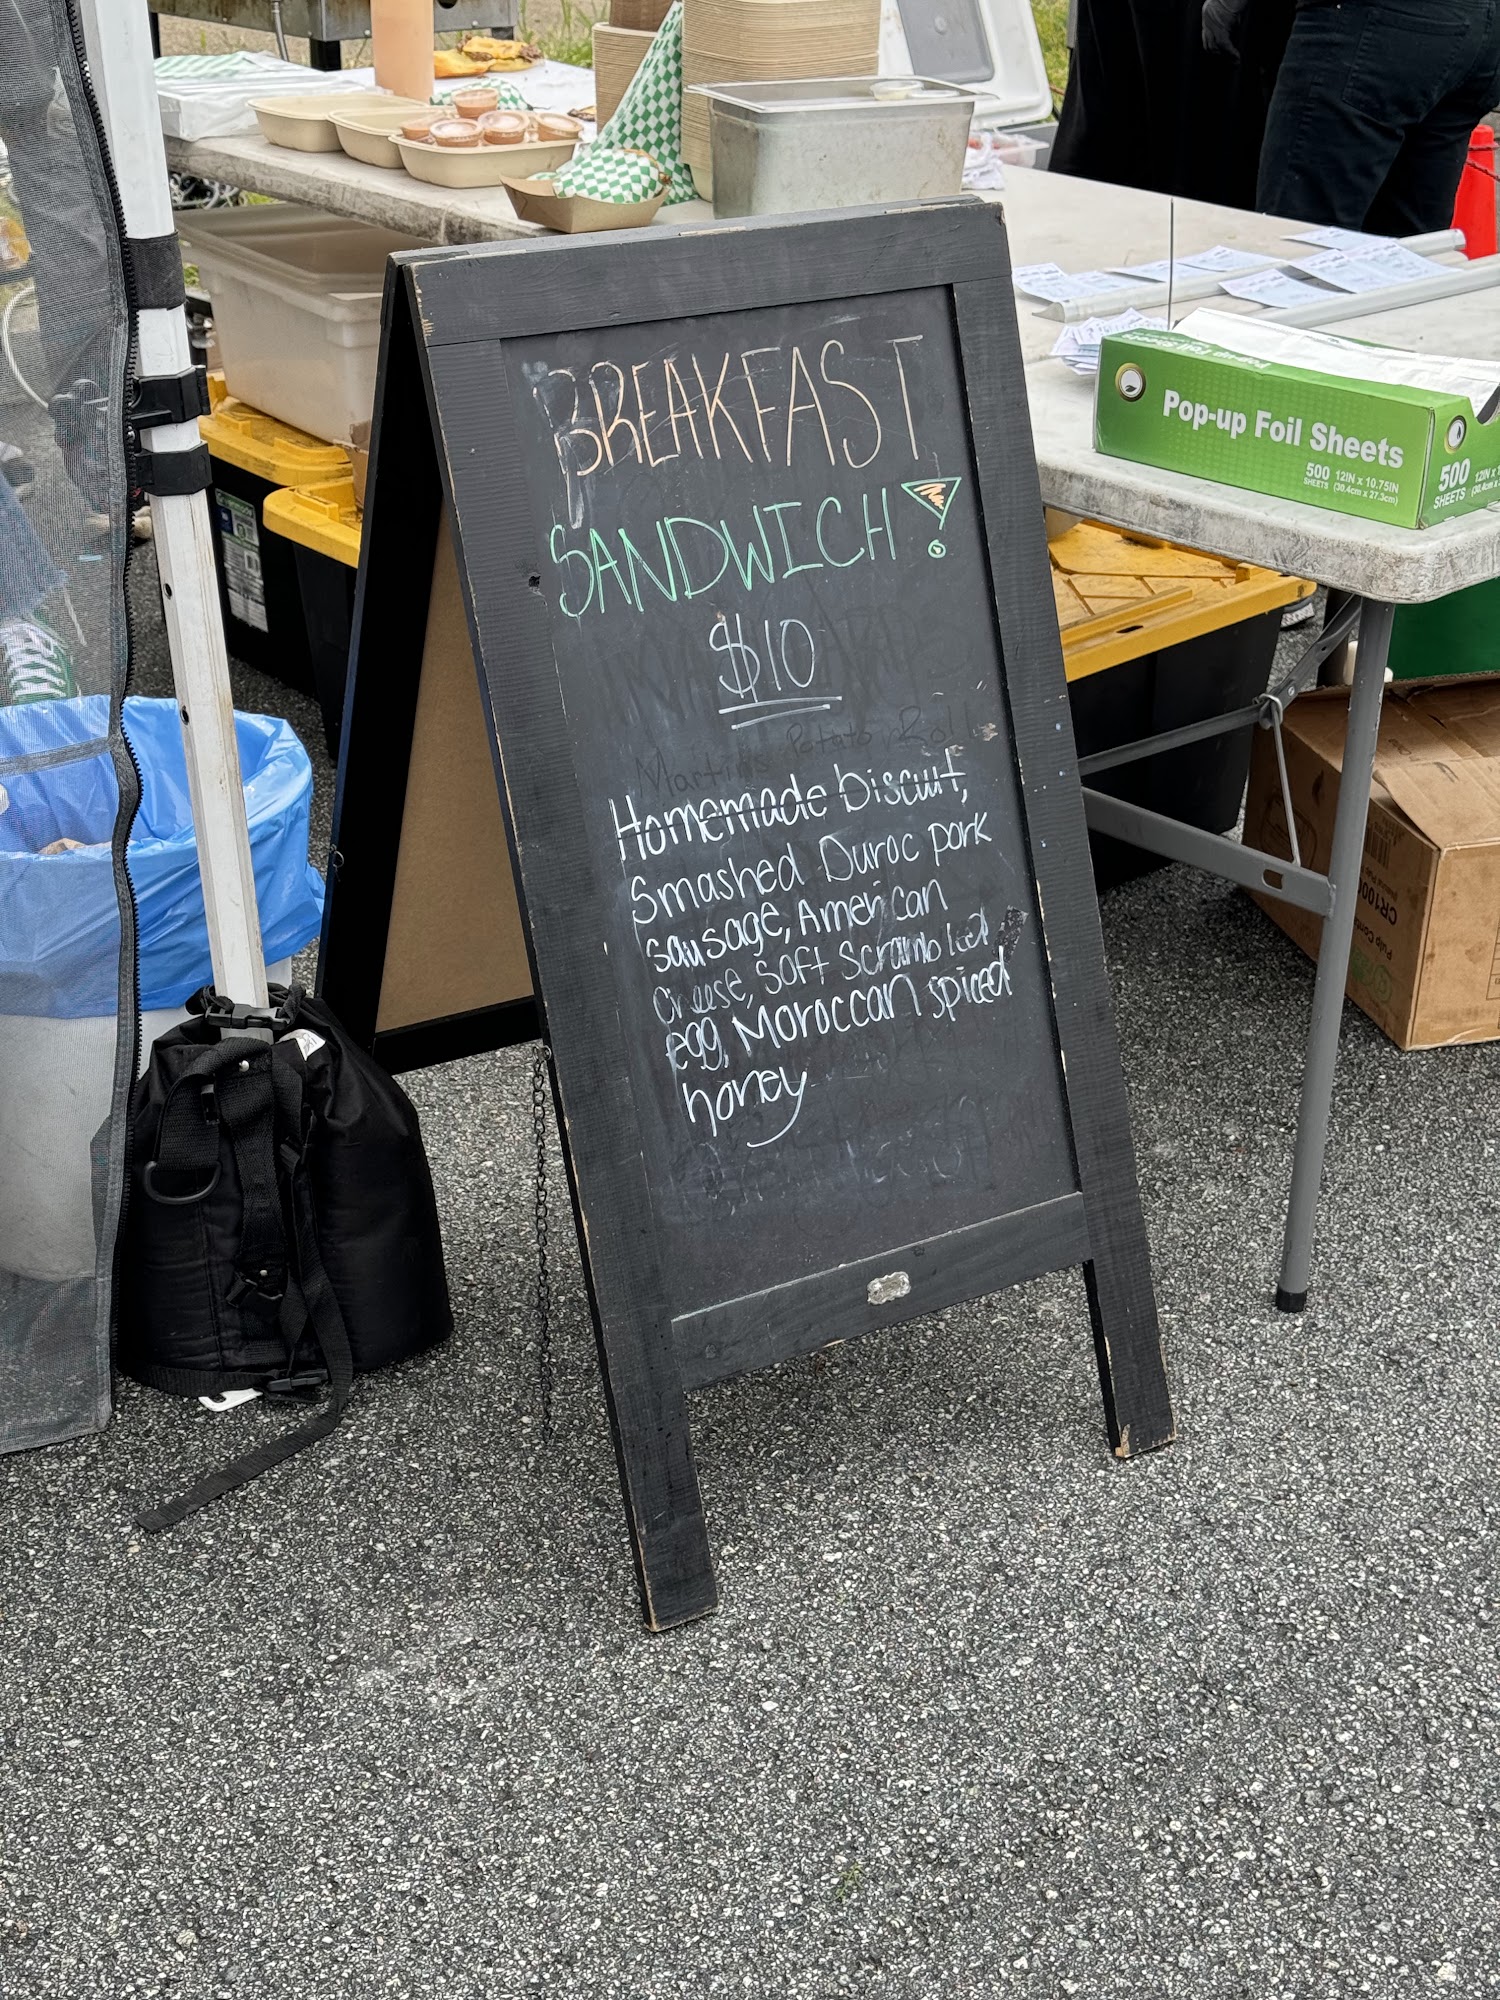 BREAKFAST
SANDWICH!
$10
Martin's Potato Roll
Homemade biscuit,
Smashed Duroc pork
sausage, American
Cheese, Soft Scrambled
egg, Moroccan spiced
honey
Pop-up Foil Sheets
500 12IN x 10.75IN
SHEETS (30.4cm x 27.3cm)
500
SHEETS
CR100